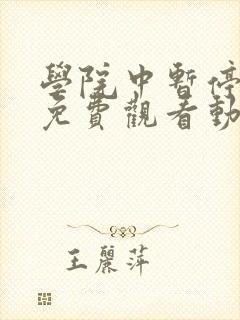 學院中暫停
免費觀看動
王麗萍